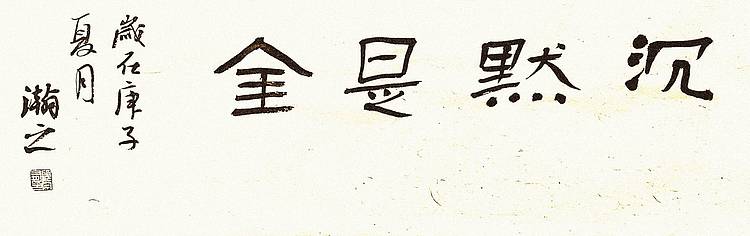 沉默是金
歲在庚子
夏月
瀚之